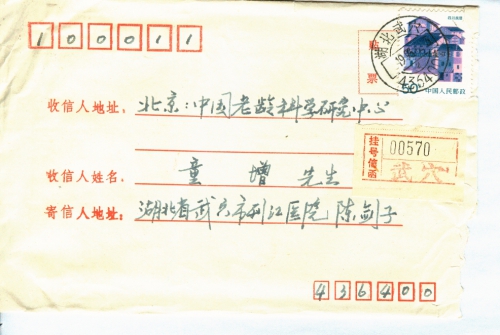 100011
贴
票
湖北武穴
4354
50
中国人民邮政
收信人地址: 北京:中国老龄科学研究中心
挂号信函
00570
武穴
收信人姓名: 童增 先生
寄信人地址: 湖北省武穴市刊江医院 陈剑子
436400